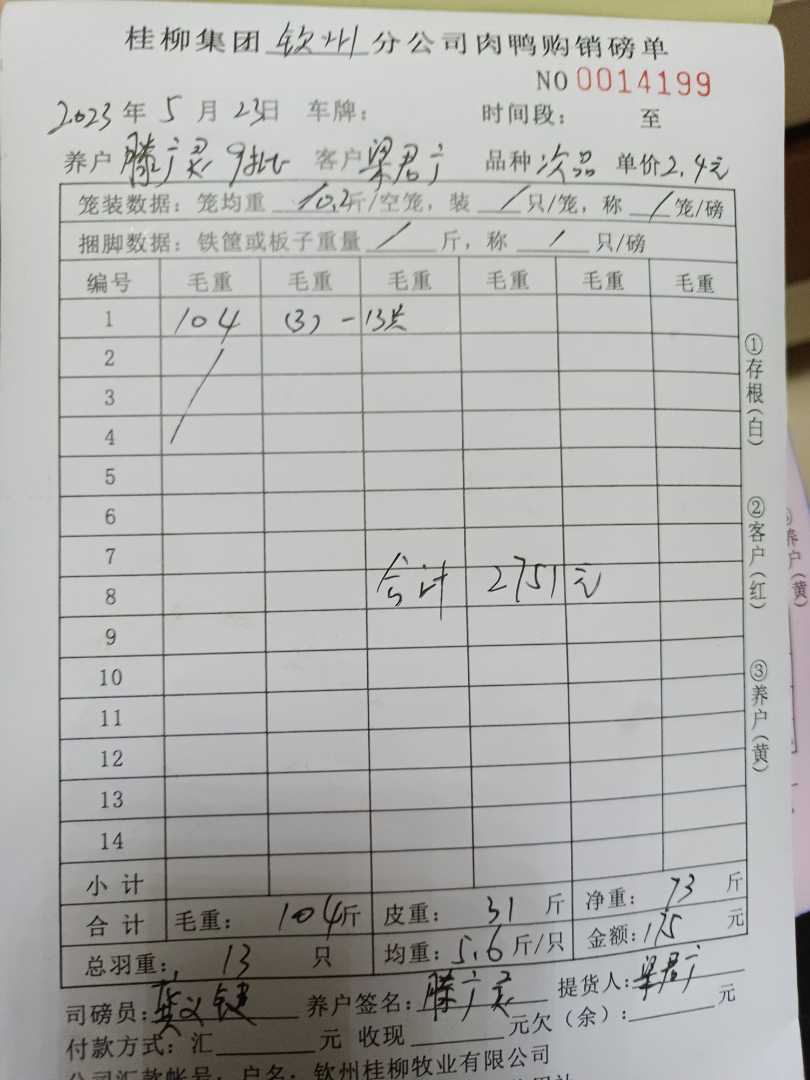 桂柳集团 钦州 分公司肉鸭购销磅单
NO 0014199
2023年 5月 23日 车牌： 时间段： 至
养户 滕广灵 9批 客户 梁君广 品种 次品 单价 2.4元
笼装数据：笼均重 10.2斤/空笼，装 / 只/笼，称 / 笼/磅
捆脚数据：铁筐或板子重量 / 斤，称 / 只/磅
编号 毛重 毛重 毛重 毛重 毛重 毛重
1 104 (3) - 13只
2
3
4
5
6
7
8 合计 2751元
9
10
11
12
13
14
小计
合计 毛重： 104斤 皮重： 31 斤 净重： 73 斤
总羽重： 13 只 均重：5.6斤/只 金额：175 元
司磅员： 养户签名：滕广灵 提货人：梁君广
付款方式：汇 元 收现 元欠（余）： 元
公司汇款帐号：户名：钦州桂柳牧业有限公司
①存根(白)
②客户(红)
③养户(黄)
养户(黄)